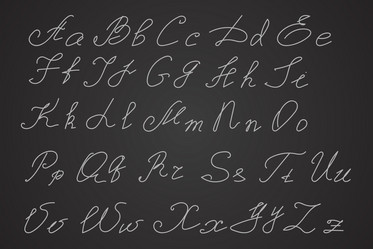 Aa Bb Cc Dd Ee
Ff Jj Gg Hh Ii
Kk Ll Mm Nn Oo
Pp Qq Rr Ss Tt Uu
Vv Ww Xx Yy Zz